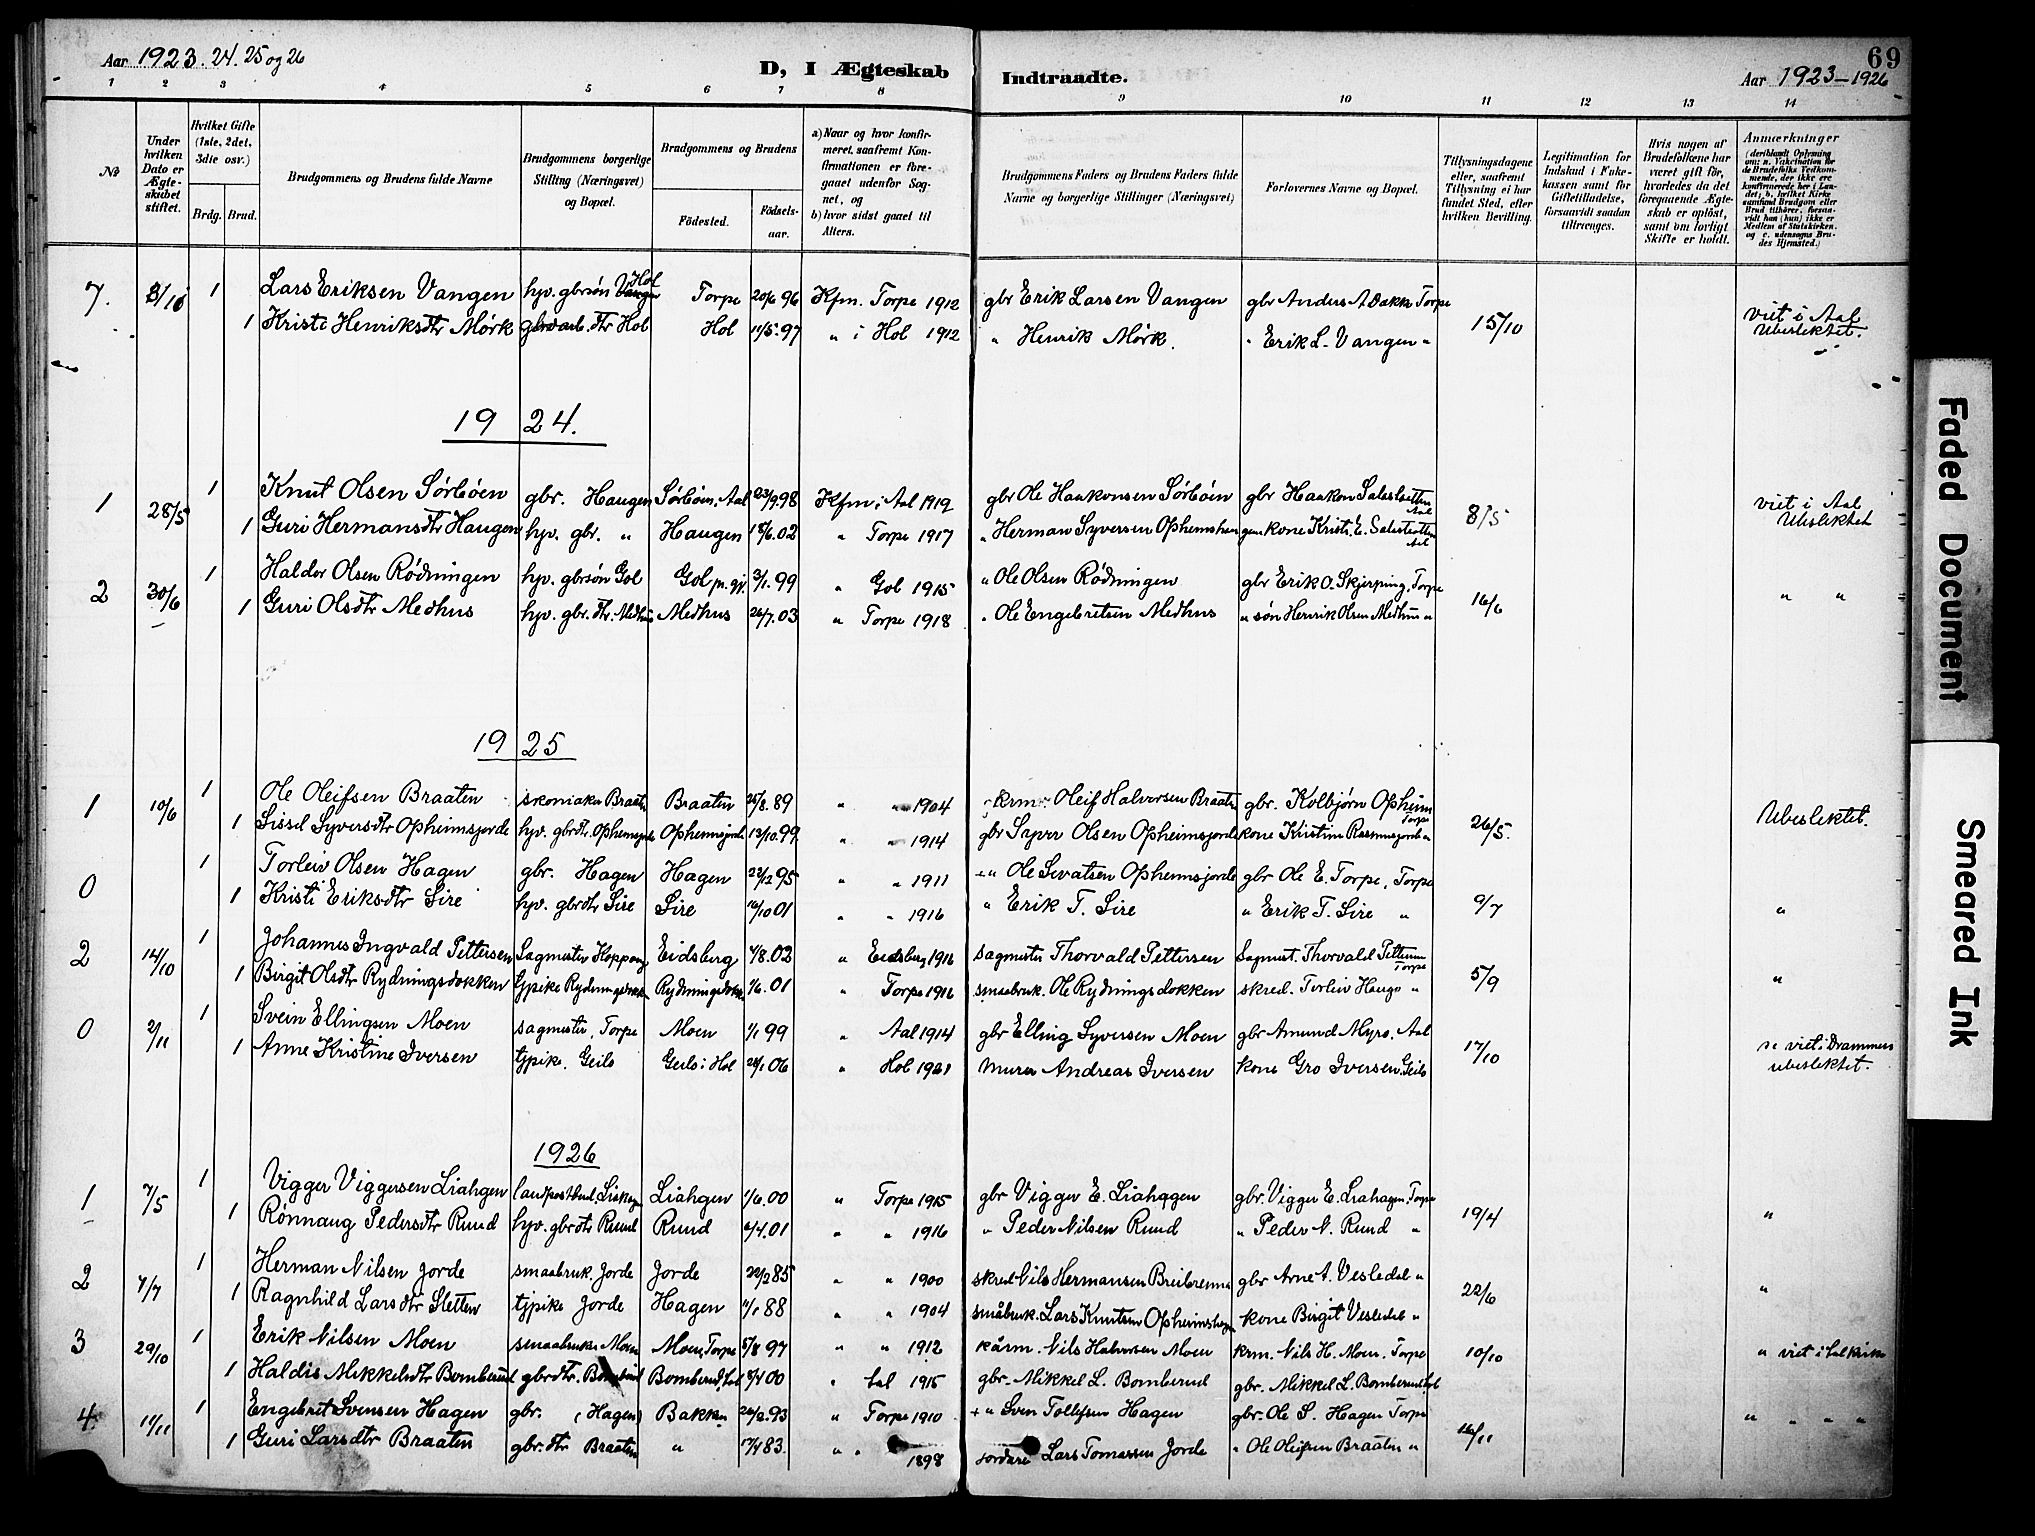 Aar 1923. 24. 25 og 26
D, I Ægteskab Indtraadte.
69
Aar 1923–1926
1 2 3 4 5 6 7 8 9 10 11 12 13 14
№
Under hvilken Dato er Ægteskabet stiftet.
Hvilket Gifte (1ste, 2det, 3die osv.)
Brdg. Brud.
Brudgommens og Brudens fulde Navne
Brudgommens borgerlige Stilling (Næringsvei) og Bopæl.
Brudgommens og Brudens
Fødested.
Fødselsaar.
a) Naar og hvor konfirmeret, saafremt Konfirmationen er foregaaet udenfor Sognet, og
b) hvor sidst gaaet til Alters.
Brudgommens Faders og Brudens Faders fulde Navne og borgerlige Stillinger (Næringsvei)
Forlovernes Navne og Bopæl.
Tillysningsdagene eller, saafremt Tillysning ei har fundet Sted, efter hvilken Bevilling.
Legitimation for Indskud i Enkekassen samt for Giftetilladelse, forsaavidt saadan tiltrænges.
Hvis nogen af Brudefolkene har været gift før, hvorledes da det foregaaende Ægteskab er opløst, samt om lovligt Skifte er holdt.
Anmærkninger (deriblandt Oplysning om: a. Vakcination for de Brudefolks Vedkommende, der ikke ere konfirmerede her i Landet; b. hvilket Kirkesamfund Brudgom eller Brud tilhører, forsaavidt han (hun) ikke er Medlem af Statskirken. og c. udensogns Brudes Hjemsted.)
7. 1 Lars Eriksen Vangen hv. gbrsøn Hol Torpe 20/6 96 Kfm. Torpe 1912 gbr Erik Larsen Vangen gbr Anders A Bakkn Torpe
1 Kristi Henriksdtr Mørk dtr Hol Hol 11/5. 97 " i Hol 1912 " Henrik Mørk. " Erik L. Vangen " 15/10 viet i Aal Ubeslektet.
1924.
1 28/5 1 Knut Olsen Sørbøen gbr. Haugen Sørbøen, Aal 23/9.98 Kfm i Aal 1919 gbr Ole Haakonsen Sørbøen gbr Haakon Aal 8/5 viet i Aal
1 Guri Hermansdtr Haugen hv. gbr. " Haugen 18/6.02 " Torpe 1917 " Herman Syversen Opheimshaugen kone Kristi E. Aal Ubeslektet
2 30/6 1 Haldor Olsen Rødningen hv. gbrsøn Gol Gol p. gj. 3/1. 99 " Gol 1915 " Ole Olsen Rødningen gbr Erik O. Skjerping, Torpe 16/6 " "
1 Guri Olsdtr Medhus hv. gbr. dtr. Medhus Medhus 26/7. 03 " Torpe 1918 " Ole Engebretsen Medhus " søn Henrik Olsen Medhus "
1925
1 10/6 1 Ole Oleifsen Braaten skomaker Braaten Braaten 25/8. 89 " " 1904 krm. Oleif Halvorsen Braaten gbr. Kolbjørn Opheim Torpe 26/5. Ubeslektet.
1 Sissel Syversdtr Opheimsjorde hv. gbrdtr. Opheimsjorde Opheimsjorde 13/10.99 " " 1914 gbr Syver Olsen Opheimsjorde kone Kristine Rasmusjorde "
0 1 Torleiv Olsen Hagen gbr. Hagen Hagen 22/12 95 " " 1911 + " Ole Sevatsen Opheimsjorde gbr Ole E. Torpe, Torpe 9/7 "
1 Kristi Eriksdtr Sire hv. gbrdtr Sire Sire 16/10 01 " " 1916 " Erik T. Sire " Erik T. Sire "
2 14/10 1 Johannes Ingvald Pettersen Sagmester Eidsberg 4/8.02 " Eidsberg 1916 sagmester Thorvald Pettersen Sagmest. Thorvald Pettersen Torpe 5/9 "
1 Birgit Olsdtr Rydningsdokken tjpike Rydningsdokken Rydningsdokken 1/6. 01 " Torpe 1916 smaabruk. Ole Rydningsdokken skred. Torleiv Haugo "
0 2/11 1 Svein Ellingsen Moen sagmester, Torpe Moen 1/1 99 " Aal 1914 gbr Elling Syversen Moen gbr Amund Myro. Aal 17/10 viet i Drammen ubeslektet.
1 Anne Kristine Iversen tjpike. Geilo Geilo i Hol 28/1 06 " Hol 1921 murer Andreas Iversen kone Gro Iversen, Geilo
1926
1 7/5 1 Vigger Viggersen Liahgen landpostbud. Liahagen Liahgen 1/6.00 " Torpe 1915 gbr Vigger E. Liahagen gbr. Vigger E. Liahagen, Torpe 19/4 "
1 Rønnaug Pedersdtr Ruud hv. gbrdtr Ruud Ruud 6/4.01 " " 1916 " Peder Nilsen Ruud " Peder N. Ruud "
2 7/7 1 Herman Nilsen Jorde smaabruk. Jorde Jorde 22/2 85 " " 1900 skred Nils Hermansen Breibrenna gbr Arne A. Vesledal " 22/6 "
1 Ragnhild Larsdtr Sletten tjpike Jorde Hagen 11/1 88 " " 1904 småbruk. Lars Knutsen Opheimshagen kone Birgit Vesledal "
3 29/10 1 Erik Nilsen Moen smaabruker Moen Moen, Torpe 5/8 97 " " 1912 kårm. Nils Halvorsen Moen krm. Nils H. Moen. Torpe 10/10 " viet i Aal kirke
1 Haldis Mikkelsdtr Bomberud gbrdtr. Bomberud Bomberud, Aal 8/4 00 " Aal 1915 gbr. Mikkel L. Bomberud gbr. Mikkel L. Bomberud, Aal
4. 11/11 1 Engebret Svensen Hagen gbr. (Hagen) Bakken 26/2.93 " Torpe 1910 + " Sven Tollefsen Hagen gbr. Ole S. Hagen Torpe 16/11 " " " "
1 Guri Larsdtr Braaten gbr. dtr Braaten " 17/4 83. " " 1898 Lars Tomassen Jorde " Ole Oleifsen Braaten "
Faded Document
Smeared Ink